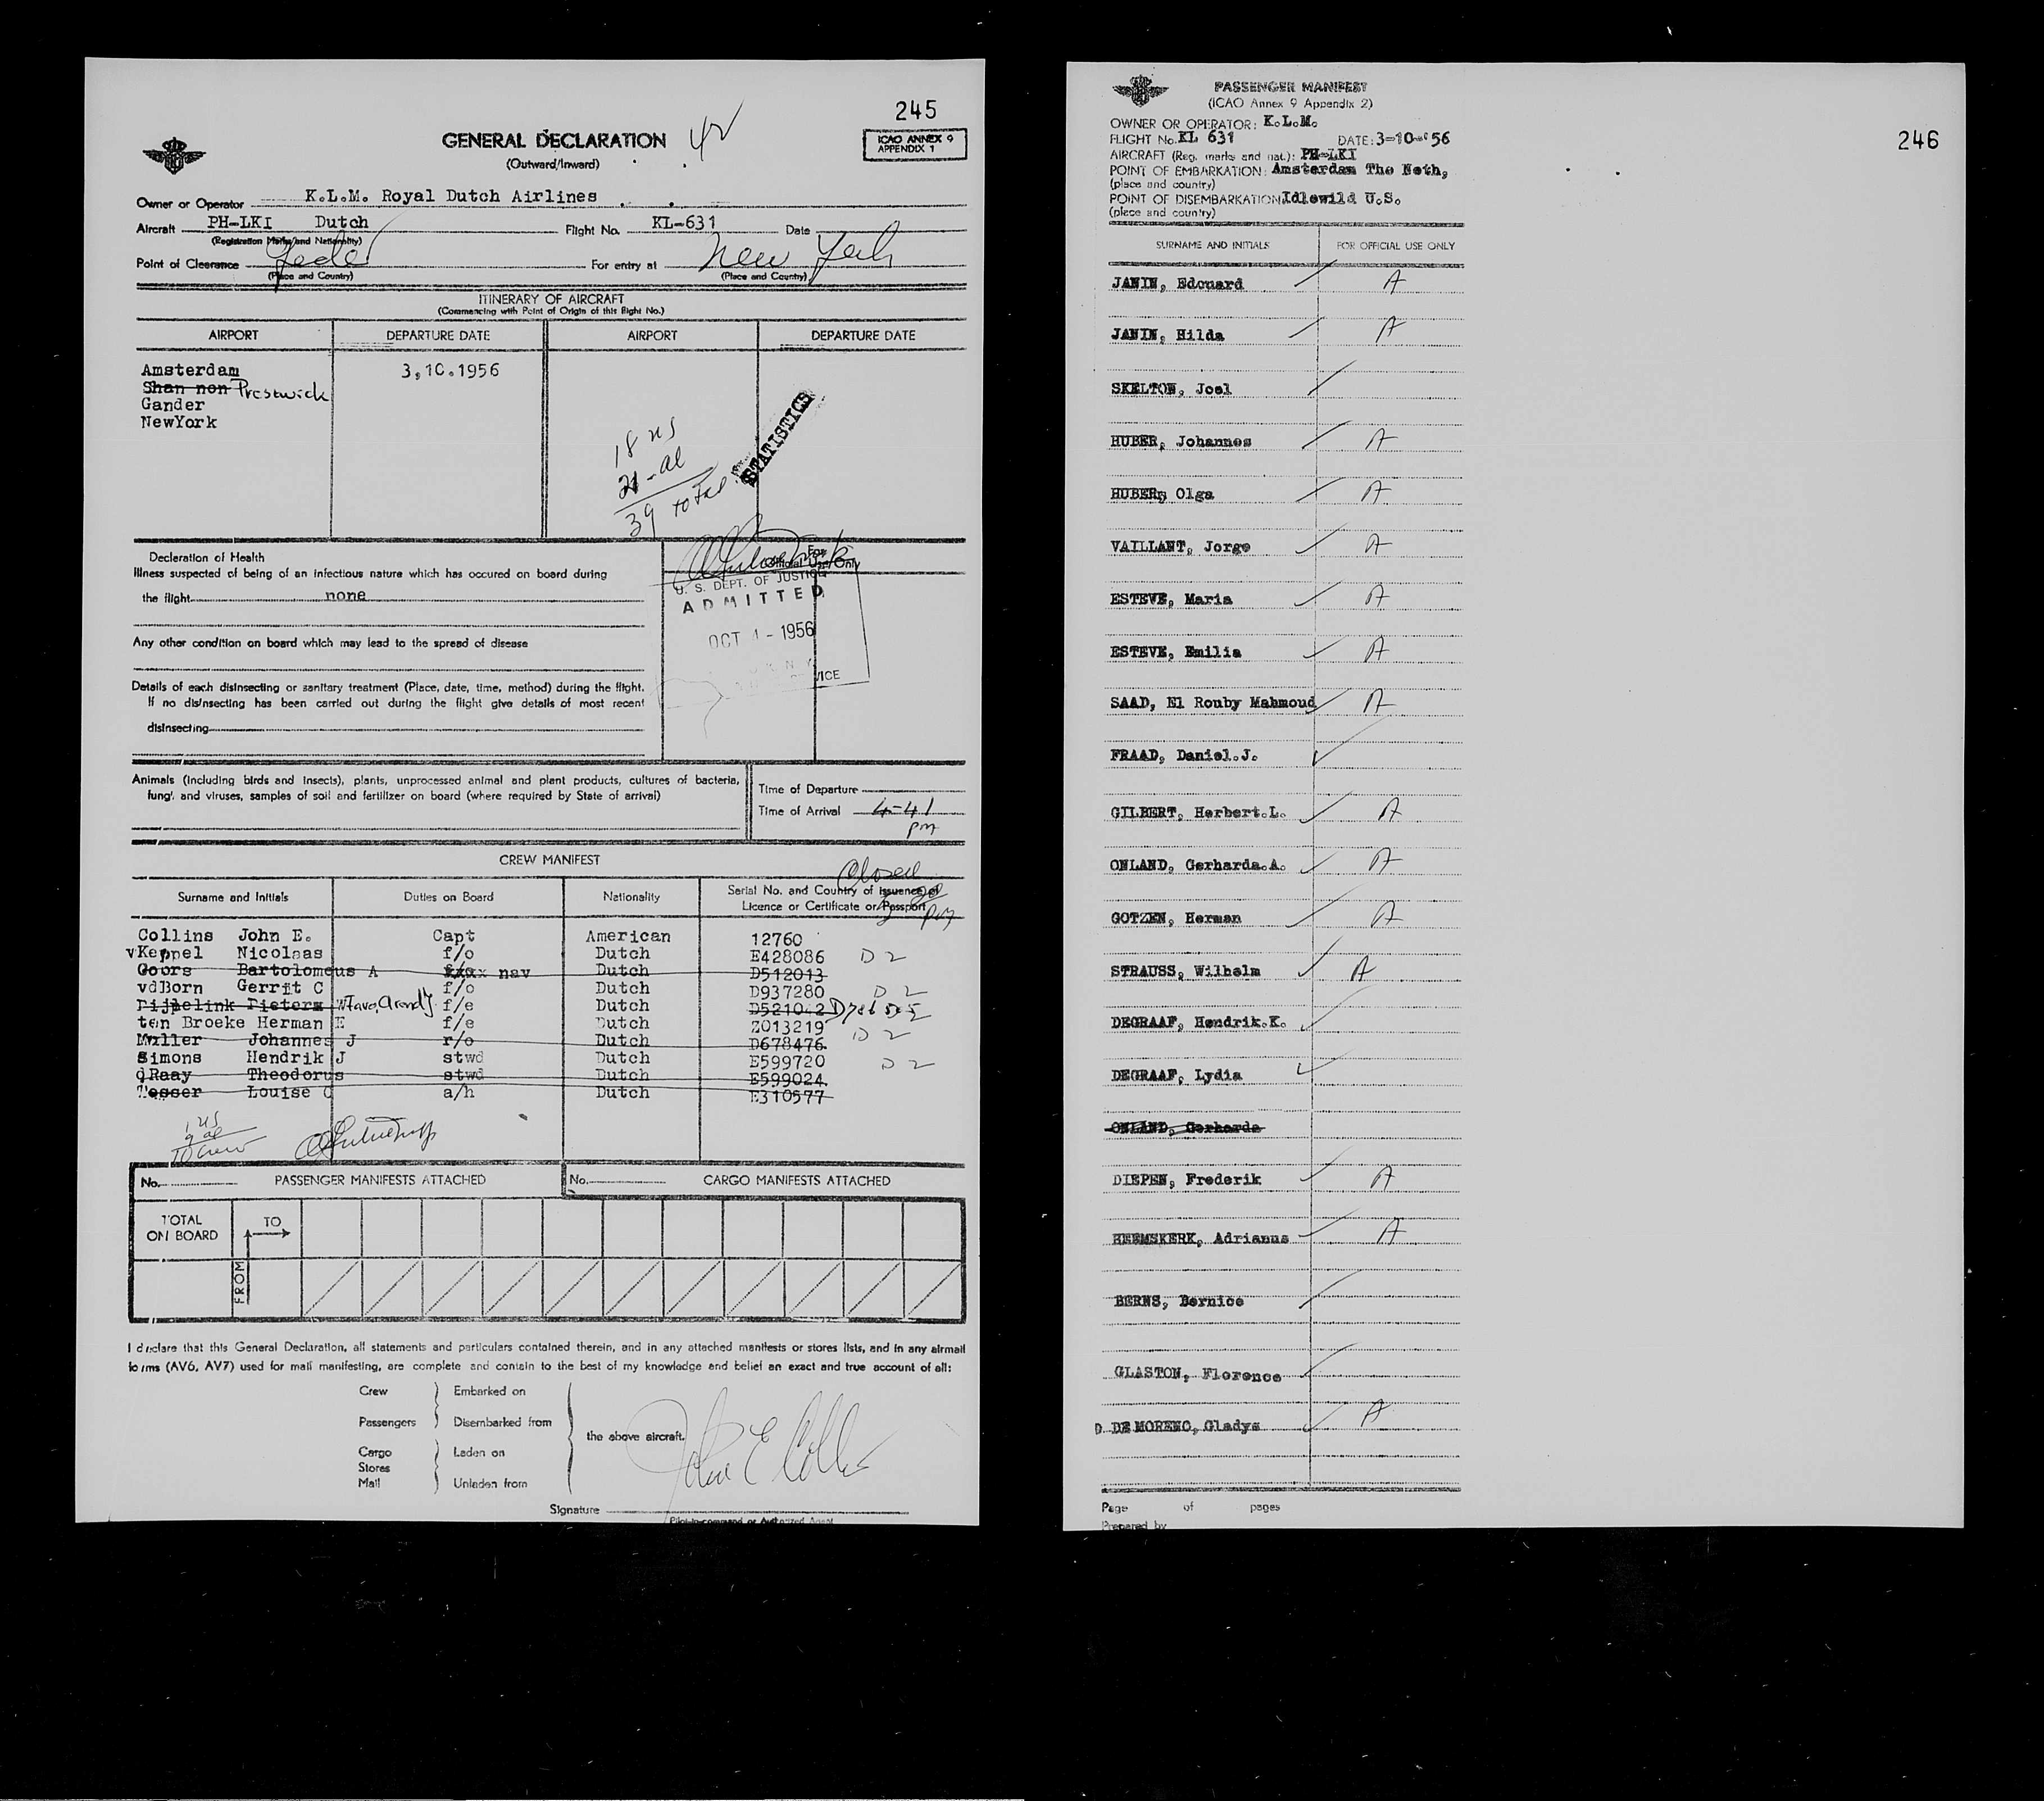 245
GENERAL DECLARATION
42
(Outward/Inward)
ICAO ANNEX 9
APPENDIX 1
Owner or Operator K.L.M. Royal Dutch Airlines
Aircraft PH-LKI Dutch Flight No. KL-631 Date
(Registration Marks and Nationality)
Point of Clearance For entry at New York
(Place and Country) (Place and Country)
ITINERARY OF AIRCRAFT
(Commencing with Point of Origin of this flight No.)
AIRPORT DEPARTURE DATE AIRPORT DEPARTURE DATE
Amsterdam 3,10.1956
Shan non Prestwick
Gander
NewYork
18 us
21-al
39 total
STATISTICS
Declaration of Health
Illness suspected of being of an infectious nature which has occured on board during
the flight none
For
Official Use Only
U. S. DEPT. OF JUSTICE
ADMITTED
OCT 4 - 1956
Any other condition on board which may lead to the spread of disease
Details of each disinsecting or sanitary treatment (Place, date, time, method) during the flight.
If no disinsecting has been carried out during the flight give details of most recent
disinsecting
Animals (including birds and insects), plants, unprocessed animal and plant products, cultures of bacteria,
fungi, and viruses, samples of soil and fertilizer on board (where required by State of arrival)
Time of Departure
Time of Arrival 4-41
pm
CREW MANIFEST
Closed
Surname and Initials Duties on Board Nationality Serial No. and Country of issuence of
Licence or Certificate or Passport
pm
Collins John E. Capt American 12760
vKeppel Nicolaas f/o Dutch E428086 D2
Goors Bartolomeus A nav Dutch D512013
vdBorn Gerrit C f/o Dutch D937280 D2
Pijpelink Pieters f/e Dutch D521042
ten Broeke Herman E f/e Dutch Z013219
Muller Johannes J r/o Dutch D678476 D2
Simons Hendrik J stwd Dutch E599720 D2
dRaay Theodorus stwd Dutch E599024
Tesser Louise C a/h Dutch E310577
1 us
9 al
10 crew
No. PASSENGER MANIFESTS ATTACHED No. CARGO MANIFESTS ATTACHED
TOTAL
ON BOARD
TO
FROM
I declare that this General Declaration, all statements and particulars contained therein, and in any attached manifests or stores lists, and in any airmail
forms (AV6, AV7) used for mail manifesting, are complete and contain to the best of my knowledge and belief an exact and true account of all:
Crew Embarked on
Passengers Disembarked from
the above aircraft.
Cargo Laden on
Stores
Mail Unladen from
John E Collins
Signature
Pilot-in-command or Authorized Agent
PASSENGER MANIFEST
(ICAO Annex 9 Appendix 2)
OWNER OR OPERATOR: K.L.M.
FLIGHT No. KL 631 DATE: 3-10-'56
246
AIRCRAFT (Reg. marks and nat.): PH-LKI
POINT OF EMBARKATION: Amsterdam The Neth,
(place and country)
POINT OF DISEMBARKATION: Idlewild U.S.
(place and country)
SURNAME AND INITIALS FOR OFFICIAL USE ONLY
JANIN, Edouard A
JANIN, Hilda A
SKELTON, Joel
HUBER, Johannes A
HUBER, Olga A
VAILLANT, Jorge A
ESTEVE, Maria A
ESTEVE, Emilia A
SAAD, El Rouby Mahmoud A
FRAAD, Daniel.J.
GILBERT, Herbert.L. A
ONLAND, Gerharda.A. A
GOTZEN, Herman A
STRAUSS, Wilhelm A
DEGRAAF, Hendrik.K.
DEGRAAF, Lydia
ONLAND, Gerharda
DIEPEN, Frederik A
HEEMSKERK, Adrianus A
BERNS, Bernice
GLASTON, Florence
D DE MORENO, Gladys A
Page of pages
Prepared by